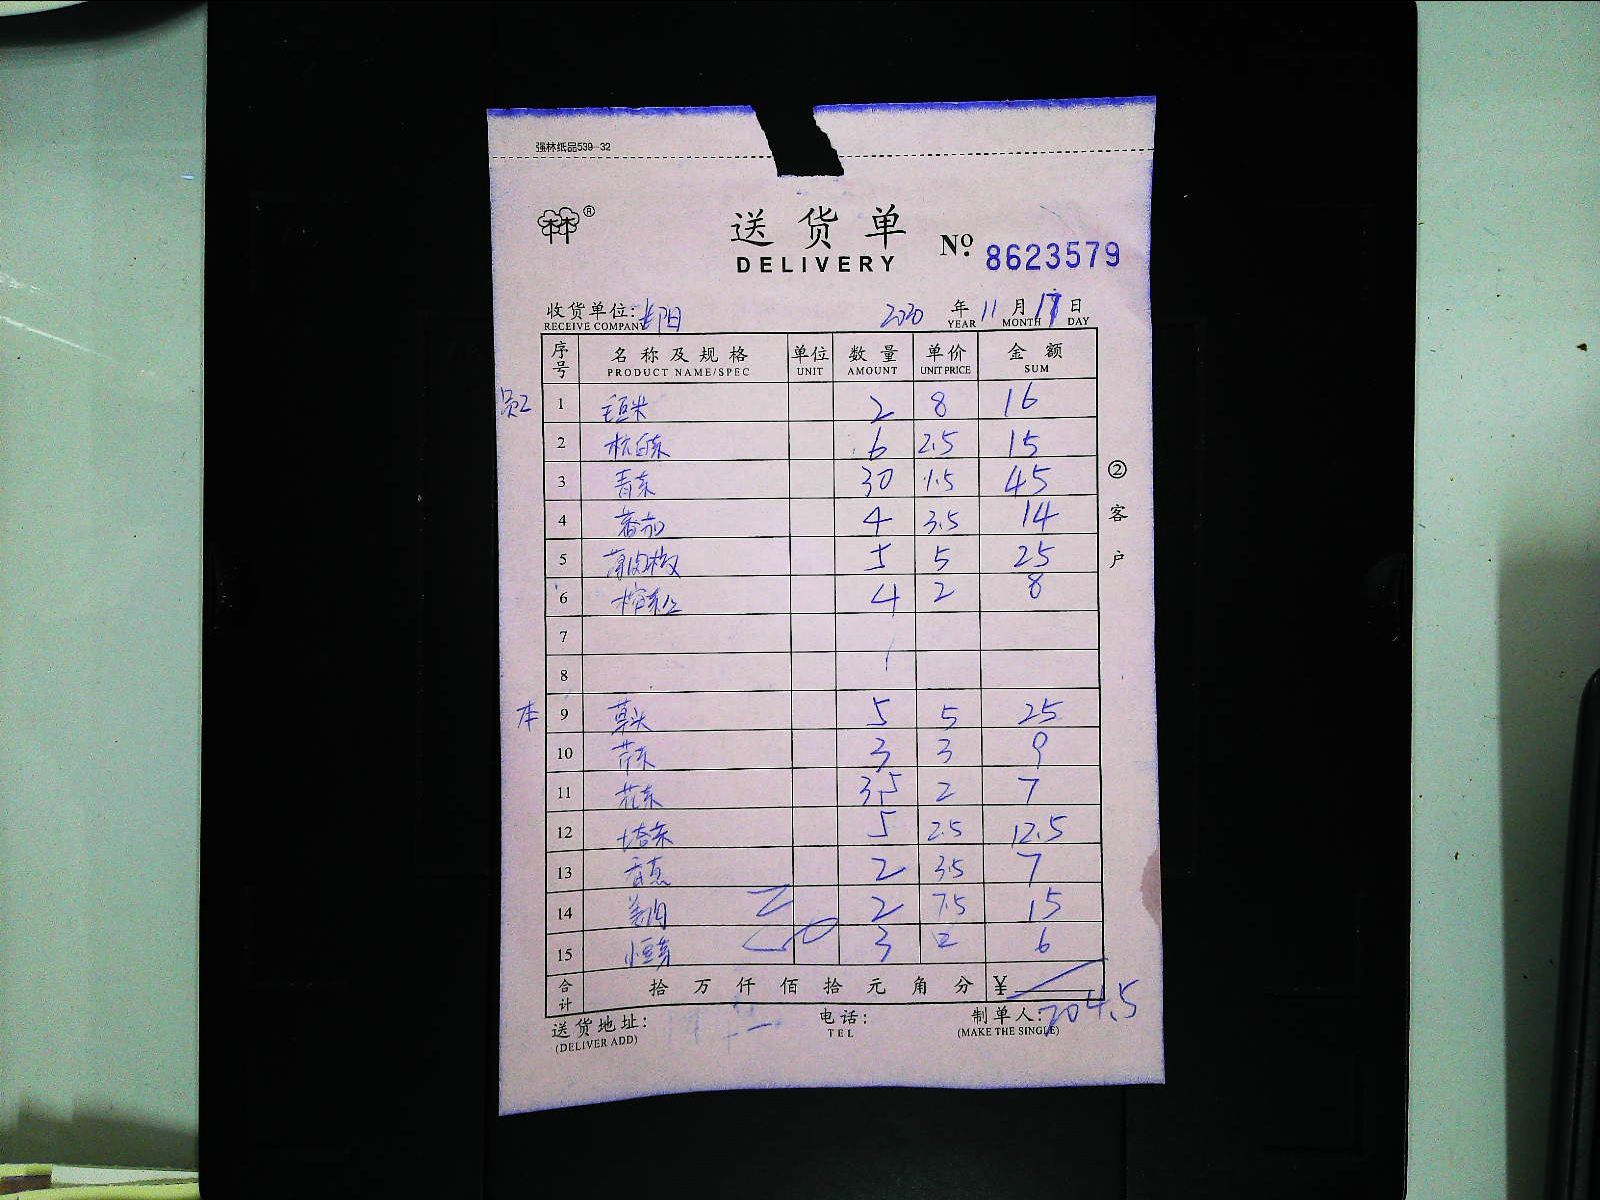 强林纸品539-32
林林®
送货单
DELIVERY
No. 8623579
收货单位: 2020 年 11 月 17 日
RECEIVE COMPANY YEAR MONTH DAY
序号 名称及规格 单位 数量 单价 金额
PRODUCT NAME/SPEC UNIT AMOUNT UNIT PRICE SUM
员工 1 毛豆米 2 8 16
2 杭白菜 6 2.5 15
3 青菜 30 1.5 45
4 番茄 4 3.5 14
5 薄肉椒 5 5 25
6 4 2 8
7
8
本 9 草头 5 5 25
10 芹菜 3 3 9
11 花菜 3.5 2 7
12 塔菜 5 2.5 12.5
13 3.5 2 7
14 2 7.5 15
15 小豆芽 3 2 6
合计 拾 万 仟 佰 拾 元 角 分 ¥ 204.5
送货地址: 电话: 制单人:
(DELIVER ADD) TEL (MAKE THE SINGLE)
②客户